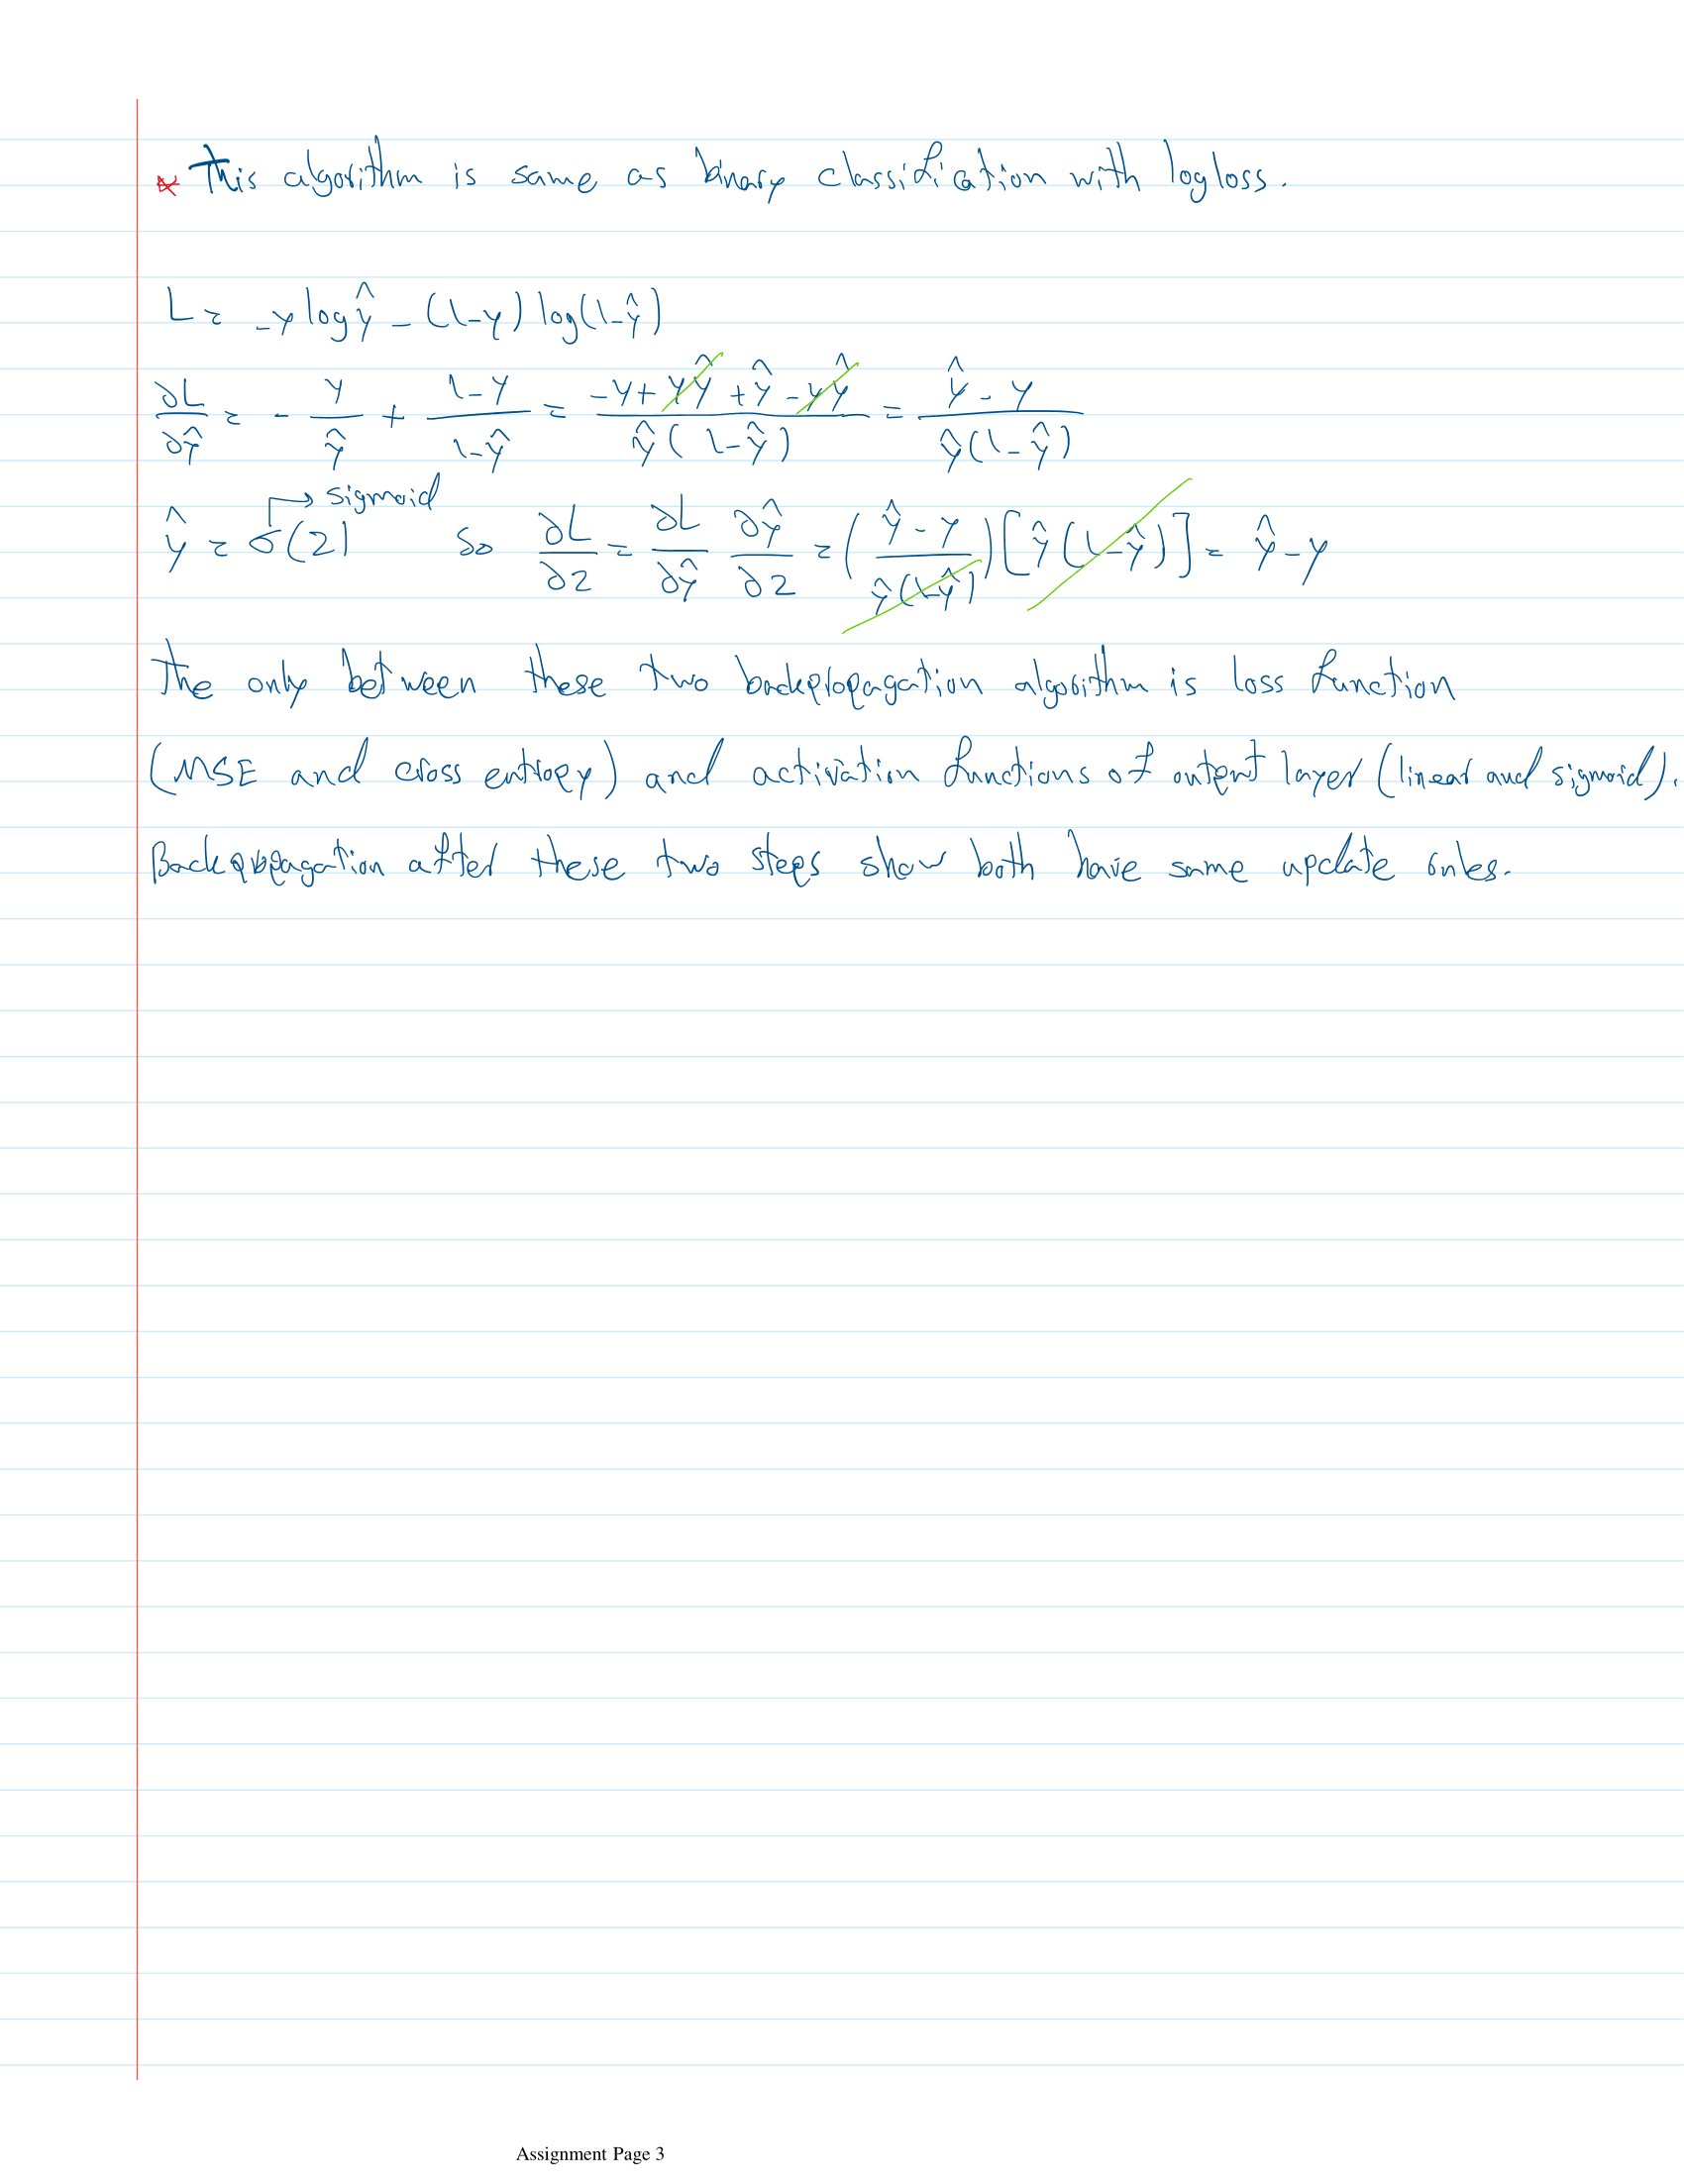 * This algorithm is same as binary classification with logloss.
L = -y log ŷ - (1-y) log(1-ŷ)
∂L/∂ŷ = - y/ŷ + (1-y)/(1-ŷ) = (-y + yŷ + ŷ - yŷ)/(ŷ(1-ŷ)) = (ŷ - y)/(ŷ(1-ŷ))
→ sigmoid
ŷ = σ(z) so ∂L/∂z = ∂L/∂ŷ ∂ŷ/∂z = ((ŷ - y)/(ŷ(1-ŷ)))[ŷ(1-ŷ)] = ŷ - y
The only between these two backpropagation algorithm is loss function
(MSE and cross entropy) and activation functions of output layer (linear and sigmoid).
Backpropagation after these two steps show both have same update rules.
Assignment Page 3